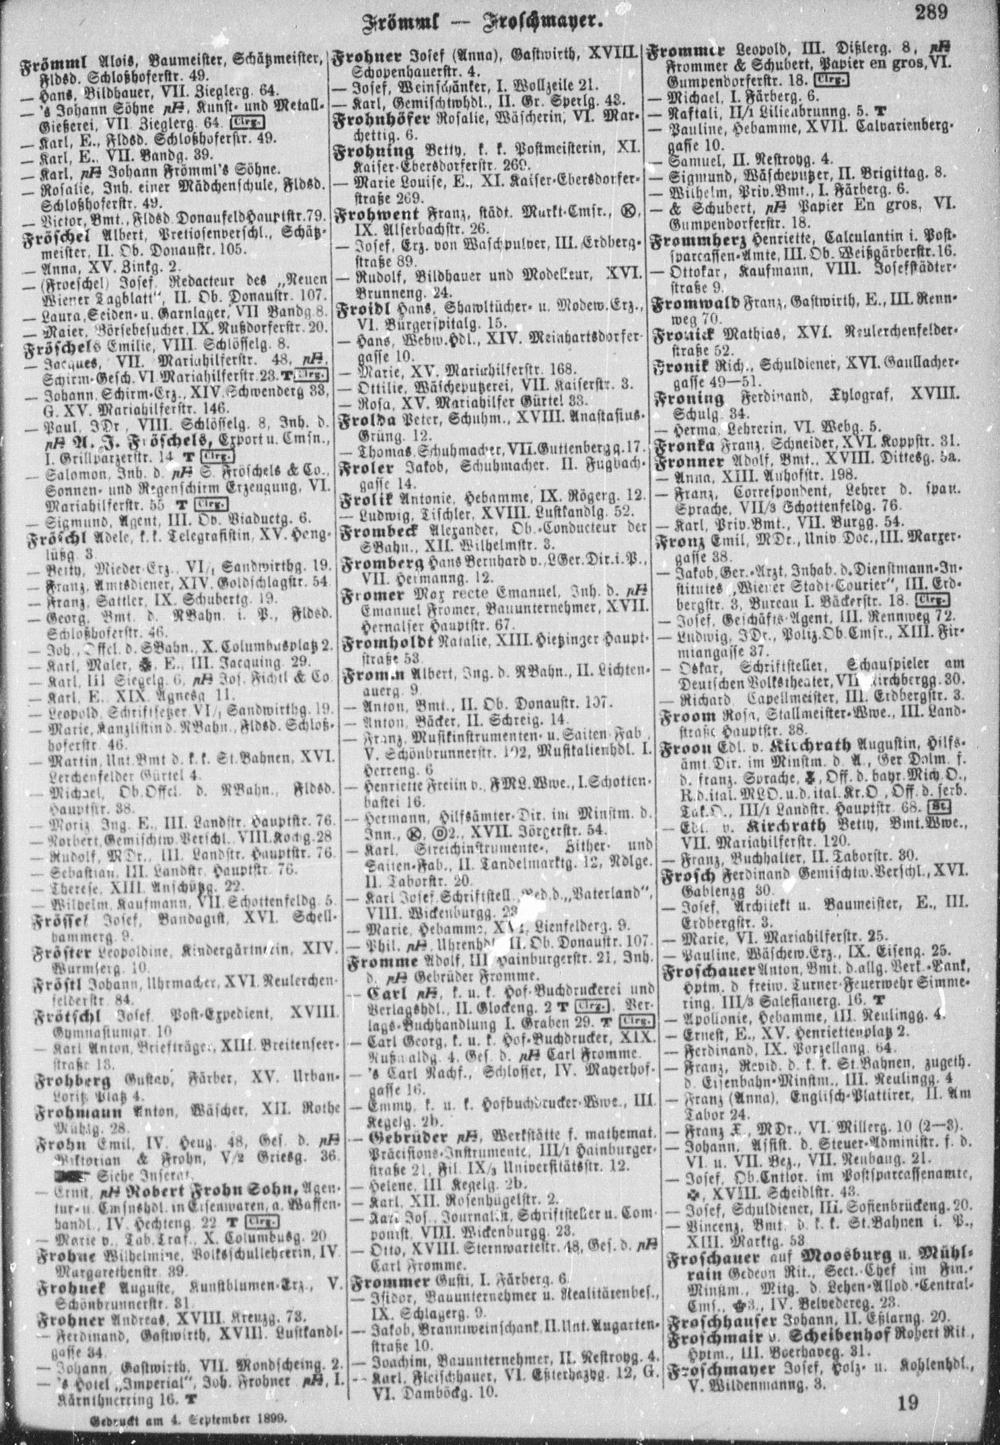 Frömml — Froschmayer.
289
Frömml Alois, Baumeister, Schätzmeister,
Fldsd. Schloßhoferstr. 49.
— Hans, Bildhauer, VII. Zieglerg. 64.
— 's Johann Söhne, Kunst- und Metall-
Gießerei, VII. Zieglerg. 64. Clrg.
— Karl, E., Fldsd. Schloßhoferstr. 49.
— Karl, E., VII. Bandg. 39.
— Karl, Johann Frömml's Söhne.
— Rosalie, Inh. einer Mädchenschule, Fldsd.
Schloßhoferstr. 49.
— Victor, Bmt., Fldsd. Donaufeld Hauptstr. 79.
Fröschel Albert, Pretiosenverschl., Schätz-
meister, II. Ob. Donaustr. 105.
— Anna, XV. Zinkg. 2.
— (Froeschel) Josef, Redacteur des „Neuen
Wiener Tagblatt", II. Ob. Donaustr. 107.
— Laura, Seiden- u. Garnlager, VII Bandg. 8.
— Maier, Börsebesucher, IX. Nußdorferstr. 20.
Fröschels Emilie, VIII. Schlösselg. 8.
— Jacques, VII. Mariahilferstr. 48,
Schirm-Gesch. VI. Mariahilferstr. 23. T Clrg.
— Johann, Schirm-Erz., XIV. Schwenderg 33,
G. XV. Mariahilferstr. 146.
— Paul, JDr., VIII. Schlösselg. 8, Inh. d.
A. J. Fröschels, Export u. Cmsn.,
I. Grillparzerstr. 14 T Clrg.
— Salomon, Inh. d. S. Fröschels & Co.,
Sonnen- und Regenschirm Erzeugung, VI.
Mariahilferstr. 55 T Clrg.
— Sigmund, Agent, III. Ob. Viaductg. 6.
Fröschl Adele, k. k. Telegrafistin, XV. Heng-
lüßg. 3.
— Betty, Mieder-Erz., VI/1 Sandwirthg. 19.
— Franz, Amtsdiener, XIV. Goldschlagstr. 54.
— Franz, Sattler, IX. Schubertg. 19.
— Georg, Bmt. d. NBahn. i. P., Fldsd.
Schloßhoferstr. 46.
— Joh., Offcl. d. SBahn., X. Columbusplatz 2.
— Karl, Maler, E., III. Jacquing. 29.
— Karl, III Siegelg. 6, Jos. Fichtl & Co.
— Karl, E. XIX. Agnesg 11.
— Leopold, Schriftsetzer VI/1 Sandwirthg. 19.
— Marie, Kanzlistin d. NBahn., Fldsd. Schloß-
hoferstr. 46.
— Martin, Unt. Bmt. d. k. k. St. Bahnen, XVI.
Lerchenfelder Gürtel 4.
— Michael, Ob. Offcl. d. NBahn., Fldsd.
Hauptstr. 38.
— Moriz, Ing. E., III. Landstr. Hauptstr. 76.
— Norbert, Gemischtw. Verschl. VIII. Kochg. 28
— Rudolf, MDr., III. Landstr. Hauptstr. 76.
— Sebastian, III. Landstr. Hauptstr. 76.
— Therese, XIII. Anschützg. 22.
— Wilhelm, Kaufmann, VII. Schottenfeldg. 5.
Frössel Josef, Bandagist, XVI. Schell-
hammerg. 9.
Fröster Leopoldine, Kindergärtnerin, XIV.
Wurmserg. 10.
Fröstl Johann, Uhrmacher, XVI. Neulerchen-
felderstr. 84.
Frötschl Josef, Post-Expedient, XVIII.
Gymnasiumgr. 10
— Karl Anton, Briefträger, XIII. Breitenseer-
straße 13.
Frohberg Gustav, Färber, XV. Urban-
Loritz Platz 4.
Frohmann Anton, Wäscher, XII. Rothe
Mühlg. 28.
Frohn Emil, IV. Heug. 48, Ges. d.
Viktorian & Frohn, V/2 Griesg. 36.
Siehe Inserat.
— Ernst, Robert Frohn Sohn, Agen-
tur- u. Cmsnshdl. in Eisenwaren, a. Waffen-
handl., IV. Hechteng. 22 T Clrg.
— Marie v., Tab. Traf., X. Columbusg. 20
Frohne Wilhelmine, Volksschullehrerin, IV.
Margarethenstr. 39.
Frohnek Auguste, Kunstblumen-Erz., V.
Schönbrunnerstr. 31.
Frohner Andreas, XVIII. Kreuzg. 73.
— Ferdinand, Gastwirth, XVIII. Lustkandl-
gasse 34.
— Johann, Gastwirth, VII. Mondscheing. 2.
— 's Hotel „Imperial", Joh. Frohner, I.
Kärnthnerring 16. T
Gedruckt am 4. September 1899.
Frohner Josef (Anna), Gastwirth, XVIII.
Schopenhauerstr. 4.
— Josef, Weinschänker, I. Wollzeile 21.
— Karl, Gemischtwhdl., II. Gr. Sperlg. 43.
Frohnhöfer Rosalie, Wäscherin, VI. Mar-
chettig. 6.
Frohning Betty, k. k. Postmeisterin, XI.
Kaiser-Ebersdorferstr. 269.
— Marie Louise, E., XI. Kaiser-Ebersdorfer-
straße 269.
Frohwent Franz, städt. Markt-Cmsr., K,
IX. Alserbachstr. 26.
— Josef, Erz. von Waschpulver, III. Erdberg-
straße 89.
— Rudolf, Bildhauer und Modelleur, XVI.
Brunneng. 24.
Froidl Hans, Shawltücher- u. Modew. Erz.,
VI. Bürgerspitalg. 15.
— Hans, Webw. Hdl., XIV. Reinhartsdorfer-
gasse 10.
— Marie, XV. Mariahilferstr. 168.
— Ottilie, Wäscheputzerei, VII. Kaiserstr. 3.
— Rosa, XV. Mariahilfer Gürtel 33.
Frolda Peter, Schuhm., XVIII. Anastasius-
Grüng. 12.
— Thomas, Schuhmacher, VII. Guttenbergg. 17.
Froler Jakob, Schuhmacher. II. Fugbach-
gasse 14.
Frolik Antonie, Hebamme, IX. Rögerg. 12.
— Ludwig, Tischler, XVIII. Lustkandlg. 52.
Frombeck Alexander, Ob.-Conducteur der
SBahn., XII. Wilhelmstr. 3.
Fromberg Hans Bernhard v., LGer. Dir. i. P.,
VII. Hermanng. 12.
Fromer Max recte Emanuel, Inh. d.
Emanuel Fromer, Bauunternehmer, XVII.
Hernalser Hauptstr. 67.
Fromholdt Natalie, XIII. Hietzinger Haupt-
straße 53.
Fromm Albert, Ing. d. NBahn., II. Lichten-
auerg. 9.
— Anton, Bmt., II. Ob. Donaustr. 107.
— Anton, Bäcker, II. Schreig. 14.
— Franz, Musikinstrumenten- u. Saiten Fab.,
V. Schönbrunnerstr. 102, Musikalienhdl. I.
Herreng. 6
— Henriette Freiin v., FML. Wwe., I. Schotten-
bastei 16.
— Hermann, Hilfsämter-Dir. im Minstm. d.
Inn., K, D2., XVII. Jörgerstr. 54.
— Karl, Streichinstrumente-, Zither- und
Saiten-Fab., II. Tandelmarktg. 12, Ndlge.
II. Taborstr. 20.
— Karl Josef, Schriftstell., Red. d. „Vaterland",
VIII. Wickenburgg. 23
— Marie, Hebamme, Lienfelderg. 9.
— Phil. II. Ob. Donaustr. 107.
Fromme Adolf, III Hainburgerstr. 21, Inh.
d. Gebrüder Fromme.
— Carl, k. u. k. Hof-Buchdruckerei und
Verlagshdl., II. Glockeng. 2 T Clrg. Ver-
lags-Buchhandlung I. Graben 29. T Clrg.
— Carl Georg, k. u. k. Hof-Buchdrucker, XIX.
Nußwaldg. 4, Ges. d. Carl Fromme.
— 's Carl Nachf., Schlosser, IV. Mayerhof-
gasse 16.
— Emmy, k. u. k. Hofbuchdrucker-Wwe., III.
Kegelg. 2b.
— Gebrüder, Werkstätte f. mathemat.
Präcisions-Instrumente, III/1 Hainburger-
straße 21, Fil. IX/3 Universitätsstr. 12.
— Helene, III Kegelg. 2b.
— Karl, XII. Rosenhügelstr. 2.
— Karl Jos., Journalist, Schriftsteller u. Com-
ponist, VIII. Wickenburgg. 23.
— Otto, XVIII. Sternwartestr. 48, Ges. d.
Carl Fromme.
Frommer Gusti, I. Färberg. 6.
— Isidor, Bauunternehmer u. Realitätenbes.,
IX. Schlagerg. 9.
— Jakob, Branntweinschank, II. Unt. Augarten-
straße 10.
— Joachim, Bauunternehmer, II. Nestroyg. 4.
— Karl, Fleischhauer, VI. Eßterhazyg. 12, G.
VI. Damböckg. 10.
Frommer Leopold, III. Dißlerg. 8,
Frommer & Schubert, Papier en gros, VI.
Gumpendorferstr. 18. Clrg.
— Michael, I. Färberg. 6.
— Naftali, II/1 Lilienbrunng. 5. T
— Pauline, Hebamme, XVII. Calvarienberg-
gasse 10.
— Samuel, II. Nestroyg. 4.
— Sigmund, Wäscheputzer, II. Brigittag. 8.
— Wilhelm, Priv. Bmt., I. Färberg. 6.
— & Schubert, Papier En gros, VI.
Gumpendorferstr. 18.
Frommherz Henriette, Calculantin i. Post-
sparcassen-Amte, III. Ob. Weißgärberstr. 16.
— Ottokar, Kaufmann, VIII. Josefstädter-
straße 9.
Fromwald Franz, Gastwirth, E., III. Renn-
weg 70.
Fronick Mathias, XVI. Neulerchenfelder-
straße 52.
Fronik Rich., Schuldiener, XVI. Gaullacher-
gasse 49—51.
Froning Ferdinand, Xylograf, XVIII.
Schulg. 34.
— Herma, Lehrerin, VI. Webg. 5.
Fronka Franz, Schneider, XVI. Koppstr. 31.
Fronner Adolf, Bmt., XVIII. Dittesg. 5a.
— Anna, XIII. Auhofstr. 198.
— Franz, Correspondent, Lehrer d. span.
Sprache, VII/3 Schottenfeldg. 76.
— Karl, Priv. Bmt., VII. Burgg. 54.
Fronz Emil, MDr., Univ Doc., III. Marxer-
gasse 38.
— Jakob, Ger.-Arzt, Inhab. d. Dienstmann-In-
stitutes „Wiener Stadt-Courier", III. Erd-
bergstr. 3, Bureau I. Bäckerstr. 18. Clrg.
— Josef, Geschäfts Agent, III. Rennweg 72.
— Ludwig, JDr., Poliz. Ob. Cmsr., XIII. Fir-
miangasse 37.
— Oskar, Schriftsteller, Schauspieler am
Deutschen Volkstheater, VII. Kirchbergg. 30.
— Richard Capellmeister, III. Erdbergstr. 3.
Froom Rosa, Stallmeister-Wwe., III. Land-
straße Hauptstr. 38.
Froon Edl. v. Kirchrath Augustin, Hilfs-
ämt. Dir. im Minstm. d. A., Ger. Dolm. f.
d. franz. Sprache, Off. d. bayr. Mich. O.,
R. d. ital. MLO. u. d. ital. Kr. O., Off. d. serb.
Tak. O., III/1 Landstr. Hauptstr. 68. St.
— Edl. v. Kirchrath Betty, Bmt. Wwe.,
VII. Mariahilferstr. 120.
— Franz, Buchhalter, II. Taborstr. 30.
Frosch Ferdinand Gemischtw. Verschl., XVI.
Gablenzg 30.
— Josef, Architekt u. Baumeister, E., III.
Erdbergstr. 3.
— Marie, VI. Mariahilferstr. 25.
— Pauline, Wäschew. Erz., IX. Eiseng. 25.
Froschauer Anton, Bmt. d. allg. Verk.-Bank,
Hptm. d. freiw. Turner-Feuerwehr Simme-
ring, III/3 Salesianerg. 16. T
— Apollonie, Hebamme, III. Neulingg. 4.
— Ernest, E., XV. Henriettenplatz 2.
— Ferdinand, IX. Porzellang. 64.
— Franz, Revid. d. k. k. St. Bahnen, zugeth.
d. Eisenbahn-Minstm., III. Neulingg. 4
— Franz (Anna), Englisch-Plattirer, II. Am
Tabor 24.
— Franz X., MDr., VI. Millerg. 10 (2—3).
— Johann, Assist. d. Steuer-Administr. f. d.
VI. u. VII. Bez., VII. Neubaug. 21.
— Josef, Ob. Cntlor. im Postsparcassenamte,
XVIII. Scheidlstr. 43.
— Josef, Schuldiener, III. Sofienbrückeng. 20.
— Vincenz, Bmt. d. k. k. St. Bahnen i. P.,
XIII. Marktg. 53
Froschauer auf Moosburg u. Mühl-
rain Gedeon Rit., Sect.-Chef im Fin.-
Minstm., Mitg. d. Lehen-Allod.-Central-
Cms., 3., IV. Belvedereg. 23.
Froschhauser Johann, II. Eßlarng. 20.
Froschmair v. Scheibenhof Robert Rit.,
Hptm., III. Boerhaveg. 31.
Froschmayer Josef, Holz- u. Kohlenhdl.,
V. Wildenmanng. 3.
19